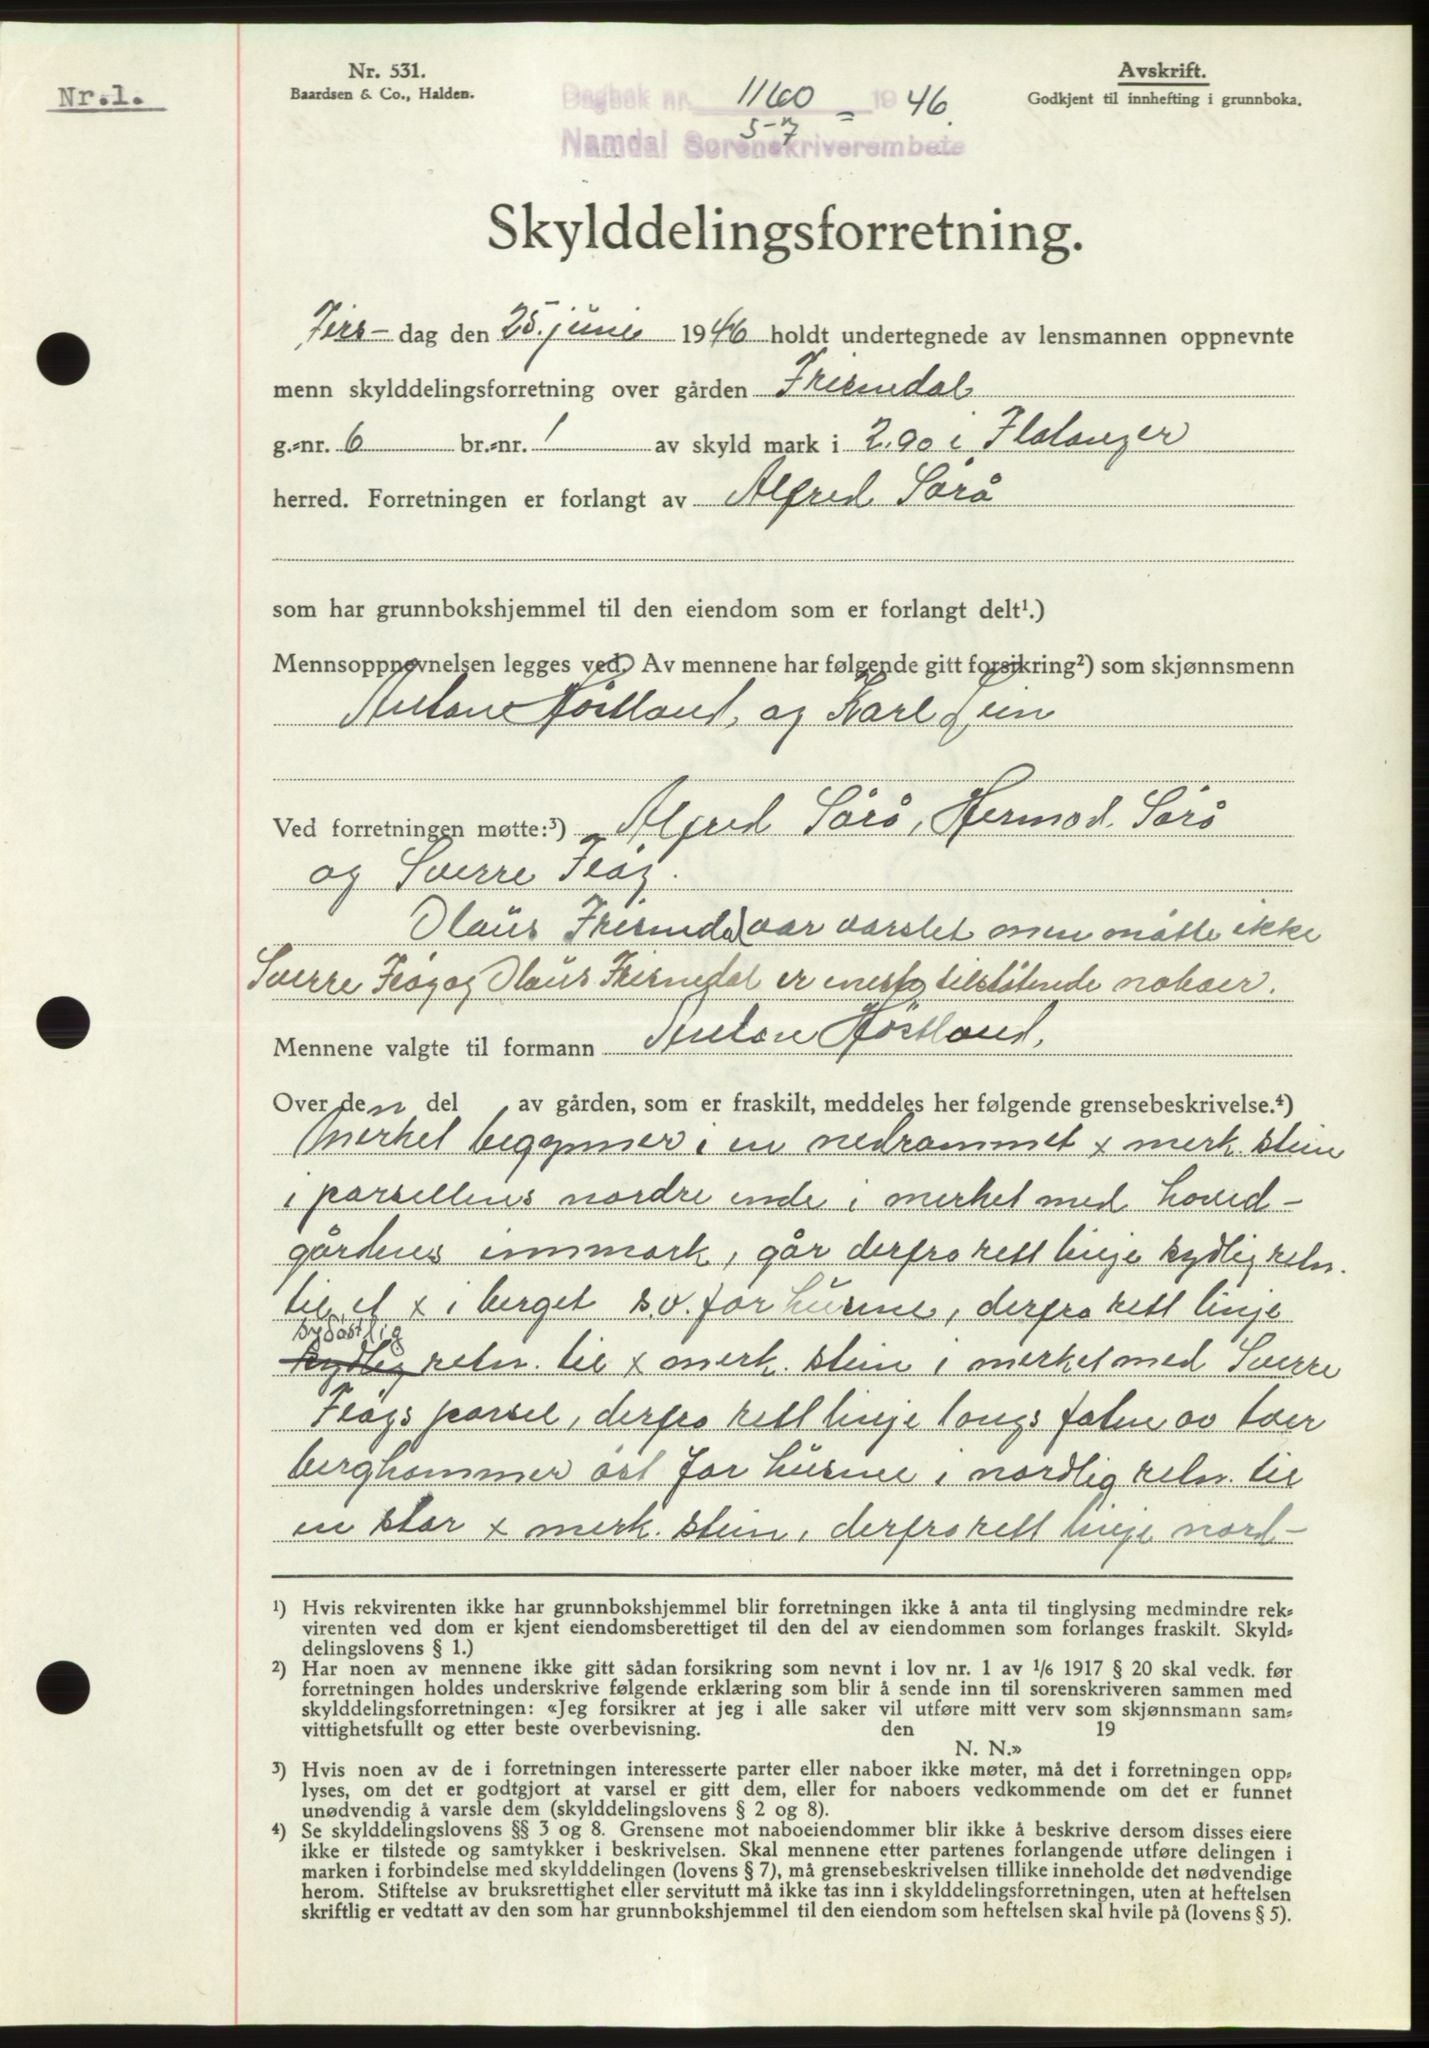 Nr. 531.
Baardsen & Co., Halden.
Avskrift.
Godkjent til innhefting i grunnboka.
Nr.1.
Dagbok nr. 1160 1946.
5-7
Namdal Sorenskriverembete
Skylddelingsforretning.
Tirs- dag den 25. juni 1946 holdt undertegnede av lensmannen oppnevnte
menn skylddelingsforretning over gården Frismdal
g.=nr. 6 br.=nr. 1 av skyld mark i 2.90 i Flatanger
herred. Forretningen er forlangt av Alfred Sörå
som har grunnbokshjemmel til den eiendom som er forlangt delt¹.)
Mennsoppnevnelsen legges ved. Av mennene har følgende gitt forsikring²) som skjønnsmenn
Anton Höstland, og Karl Lein
Ved forretningen møtte:³) Alfred Sörå, Hermod Sörå
og Sverre Fløg.
Olaus Frismdal var varslet men møtte ikke
Sverre Fløg og Olaus Frismdal er tilstötende naboer.
Mennene valgte til formann Anton Höstland,
Over den del av gården, som er fraskilt, meddeles her følgende grensebeskrivelse.⁴)
Merket begynner i en nedrammet x merk. stein
i parsellens nordre ende i merket med hoved-
gårdens innmark, går derfra rett linje sydlig retn.
til et x i berget s.v. for husene, derfra rett linje
sydöstlig
sydlig retn. til x merk. stein i merket med Sverre
Fløgs parsel, derfra rett linje langs foten av tver
berghammer öst for husene i nordlig retn. til
en stor x merk. stein, derfra rett linje nord-
¹) Hvis rekvirenten ikke har grunnbokshjemmel blir forretningen ikke å anta til tinglysing medmindre rek=
virenten ved dom er kjent eiendomsberettiget til den del av eiendommen som forlanges fraskilt. Skyld=
delingslovens § 1.)
²) Har noen av mennene ikke gitt sådan forsikring som nevnt i lov nr. 1 av 1/6 1917 § 20 skal vedk. før
forretningen holdes underskrive følgende erklæring som blir å sende inn til sorenskriveren sammen med
skylddelingsforretningen: «Jeg forsikrer at jeg i alle saker vil utføre mitt verv som skjønnsmann sam=
vittighetsfullt og etter beste overbevisning. den 19
N. N.»
³) Hvis noen av de i forretningen interesserte parter eller naboer ikke møter, må det i forretningen opp=
lyses, om det er godtgjort at varsel er gitt dem, eller for naboers vedkommende om det er funnet
unødvendig å varsle dem (skylddelingslovens § 2 og 8).
⁴) Se skylddelingslovens §§ 3 og 8. Grensene mot naboeiendommer blir ikke å beskrive dersom disses eiere
ikke er tilstede og samtykker i beskrivelsen. Skal mennene etter partenes forlangende utføre delingen i
marken i forbindelse med skylddelingen (lovens § 7), må grensebeskrivelsen tillike inneholde det nødvendige
herom. Stiftelse av bruksrettighet eller servitutt må ikke tas inn i skylddelingsforretningen, uten at heftelsen
skriftlig er vedtatt av den som har grunnbokshjemmel til den eiendom som heftelsen skal hvile på (lovens § 5).